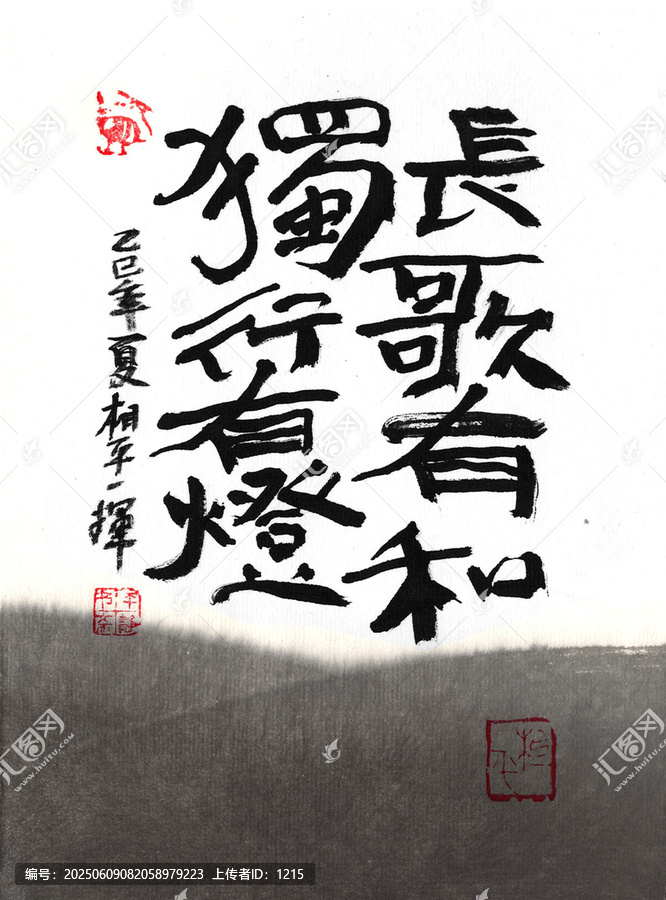 長歌有和
獨行有燈
乙巳年夏相平一揮
汇图网
www.huitu.com
编号：20250609082058979223 上传者ID：1215